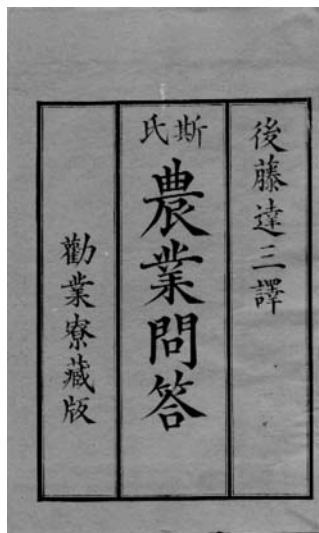 後藤達三譯
斯氏
農業問答
勸業寮藏版